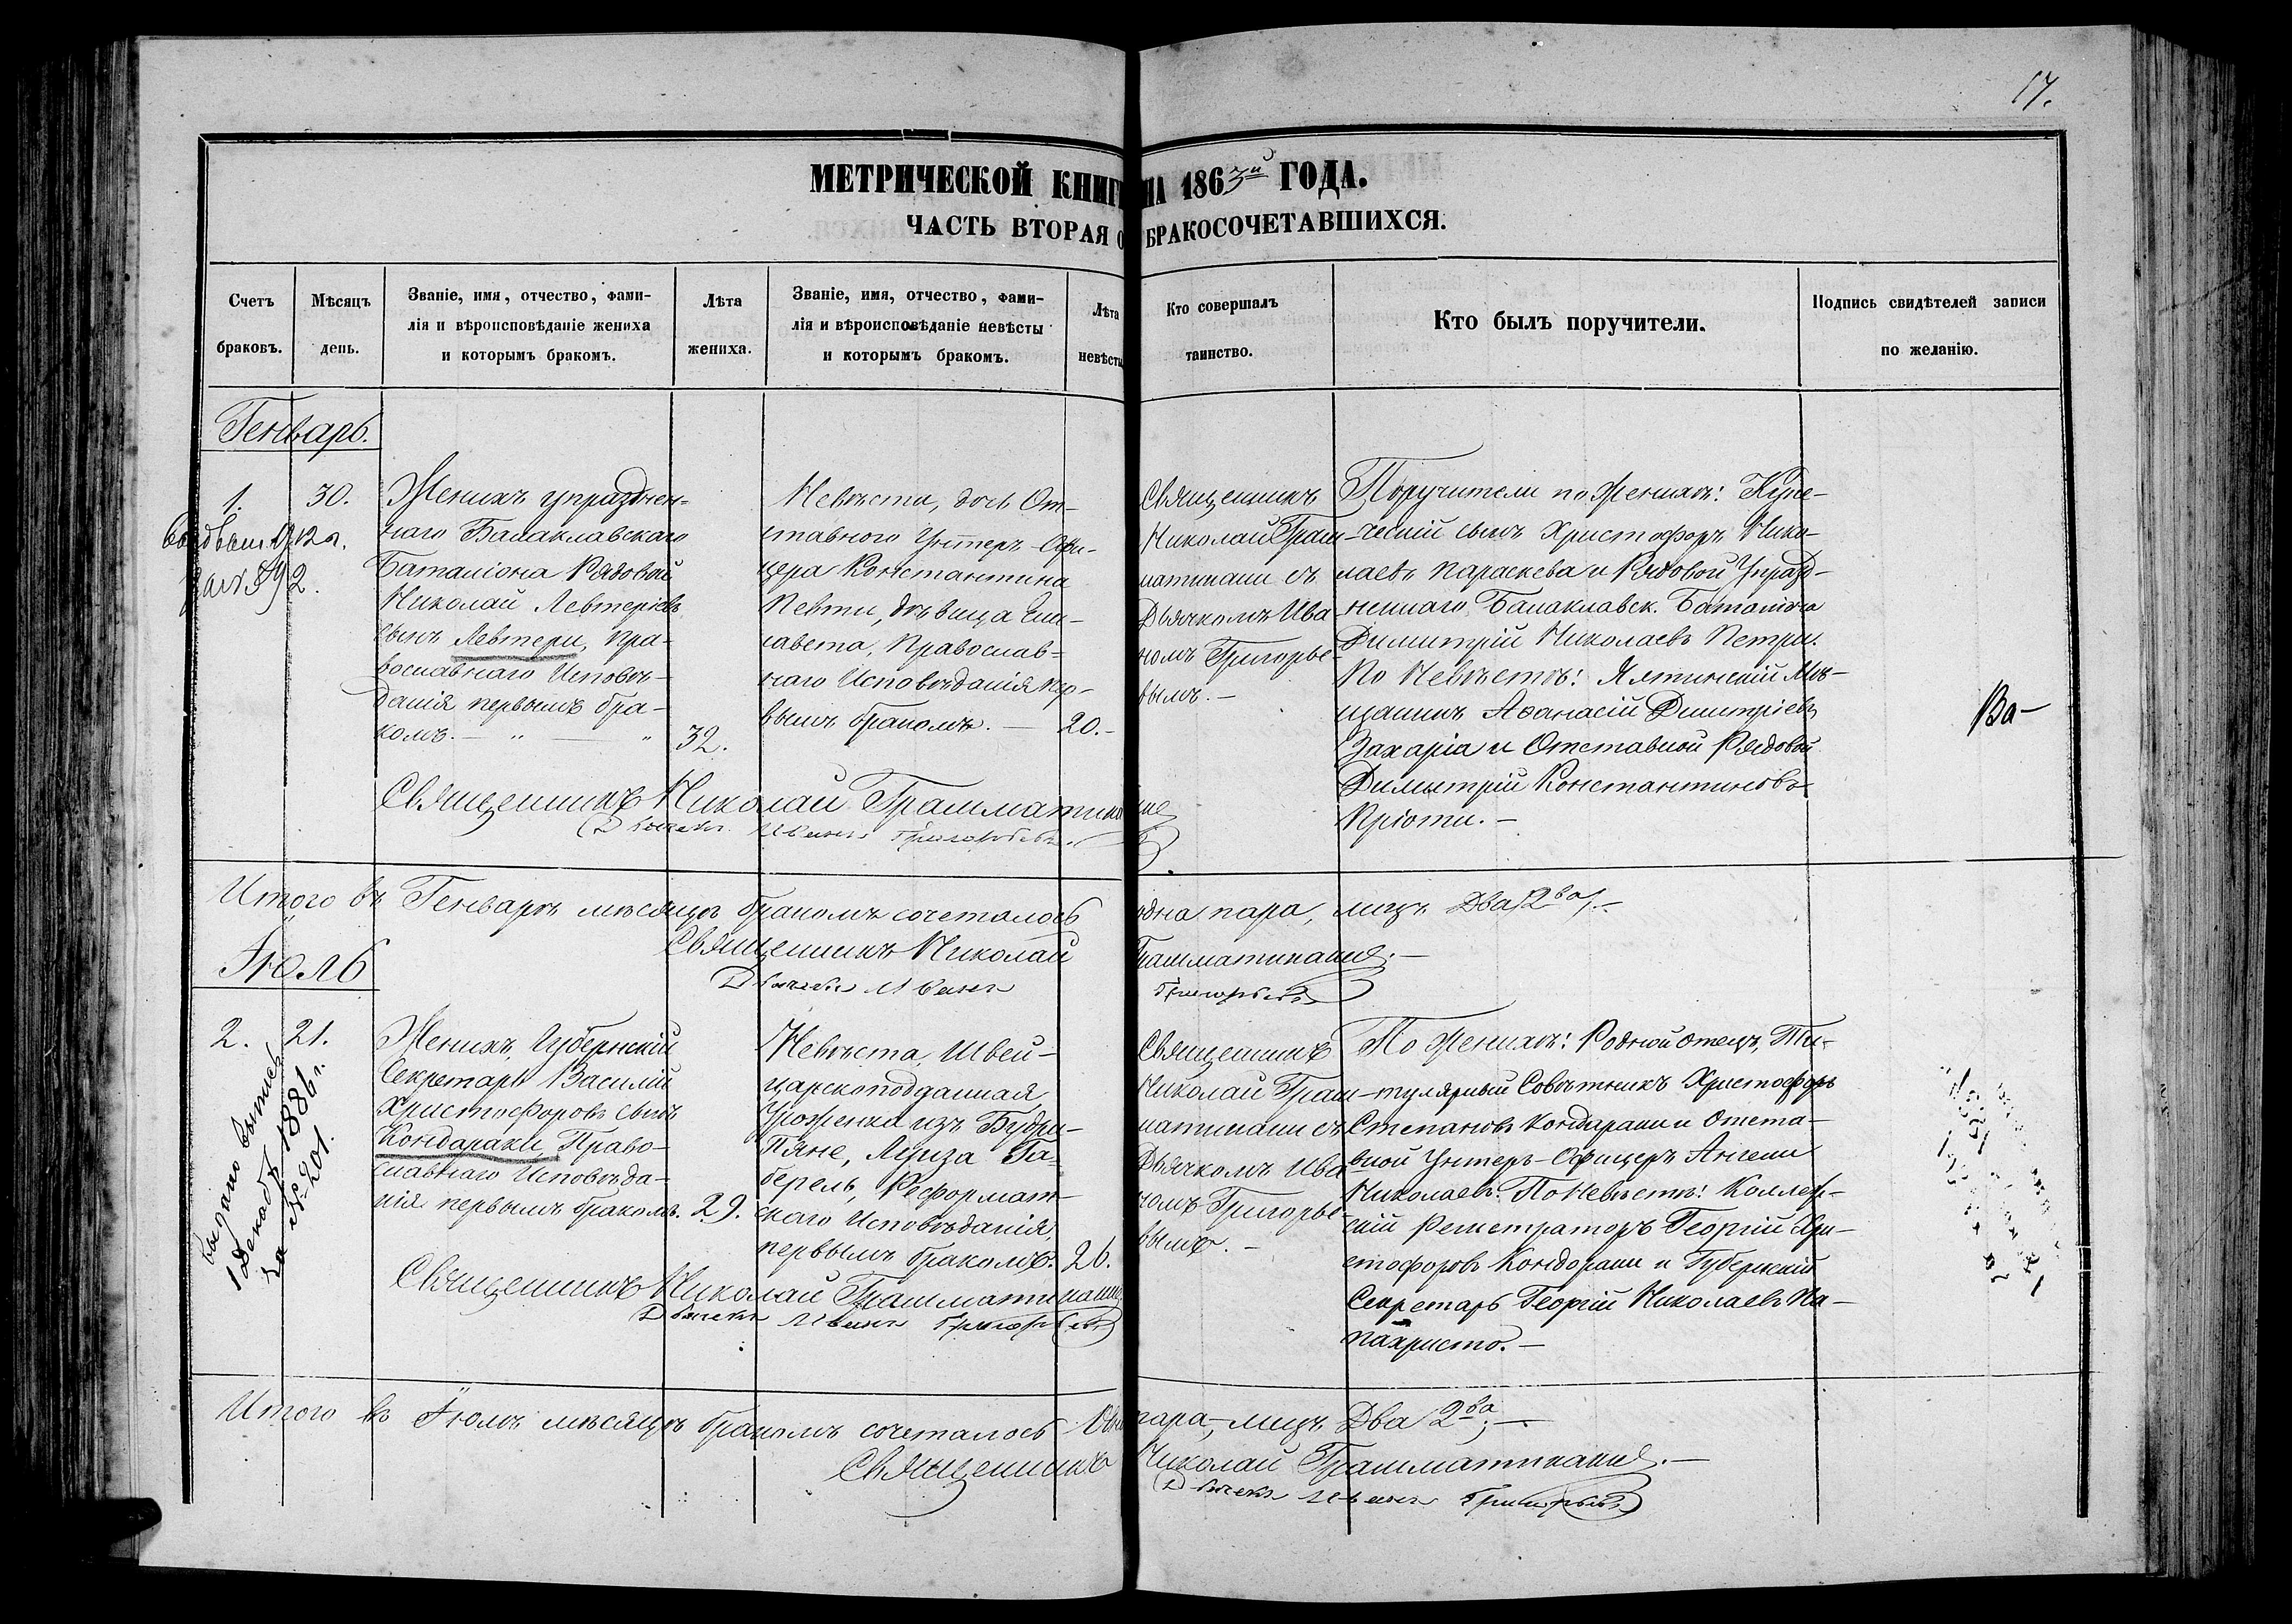 17.
МЕТРИЧЕСКОЙ КНИГИ НА 1863й ГОДА.
ЧАСТЬ ВТОРАЯ О БРАКОСОЧЕТАВШИХСЯ.
Счетъ браковъ.
Мѣсяцъ день.
Званіе, имя, отчество, фами-
лія и вѣроисповѣданіе жениха
и которымъ бракомъ.
Лѣта жениха.
Званіе, имя, отчество, фами-
лія и вѣроисповѣданіе невѣсты
и которымъ бракомъ.
Лѣта невѣсты
Кто совершалъ
таинство.
Кто былъ поручители.
Подпись свидѣтелей записи
по желанію.
Генварь.
1.
30.
за № 592.
Женихъ упразднен-
наго Балаклавскаго
Баталіона Рядовой
Николай Левтеріевъ
сынъ Левтери, пра-
вославнаго Исповѣ-
данія первымъ бра-
комъ. —
32.
Невѣста, дочь От-
ставного Унтеръ-Офи-
цера Константина
Певти, дѣвица Ели-
савета, Православ-
наго Исповѣданія пер-
вымъ бракомъ. —
20. —
Священникъ
Николай Грам-
матикати съ
Дьячкомъ Ива-
номъ Григорье-
вымъ. —
Поручители по Женихѣ: Купе-
ческій сынъ Христофоръ Нико-
лаевъ Параскева и Рядовой Упразд-
неннаго Балаклавск. Баталіона
Димитрій Николаевъ Петри.
По Невѣстѣ: Ялтинскій Мѣ-
щанинъ Аѳанасій Димитріевъ
Захаріа и Отставной Рядовой
Димитрій Константиновъ
Пріоти. —
Священникъ Николай Грамматикати
Дьячекъ Иванъ Григорьевъ.
Итого въ Генварѣ мѣсяцѣ бракомъ сочеталось одна пара, лицъ Два /2ва/. —
Священникъ Николай Грамматикати. —
Дьячекъ Иванъ Григорьевъ
Іюль
2.
21.
Выдано выпись
1 Декабр 1886 г.
за № 201.
Женихъ, Губернскій
Секретарь Василій
Христофоровъ сынъ
Кондараки, Право-
славнаго Исповѣда-
нія первымъ бракомъ.
29.
Невѣста Швей-
царскоподданная
Уроженка изъ Будри-
Пяне, Луиза Га-
берель, Реформат-
скаго Исповѣданія,
первымъ бракомъ.
26.
Священникъ
Николай Грам-
матикати съ
Дьячкомъ Ива-
номъ Григорье-
вымъ. —
По Женихѣ: Родной отецъ, Ти-
тулярный Совѣтникъ Христофоръ
Степановъ Кондараки и Отста-
вной Унтеръ-Офицеръ Ангели
Николаевъ. По Невѣстѣ: Коллеж-
скій Регистраторъ Георгій Хри-
стофоровъ Кондараки и Губернскій
Секретарь Георгій Николаевъ Па-
пахристо. —
Священникъ Николай Грамматикати
Дьячекъ Иванъ Григорьевъ
Итого въ Іюлѣ мѣсяцѣ бракомъ сочеталось пара, лицъ Два 2ва; —
Священникъ Николай Грамматикати. —
Дьячекъ Иванъ Григорьевъ